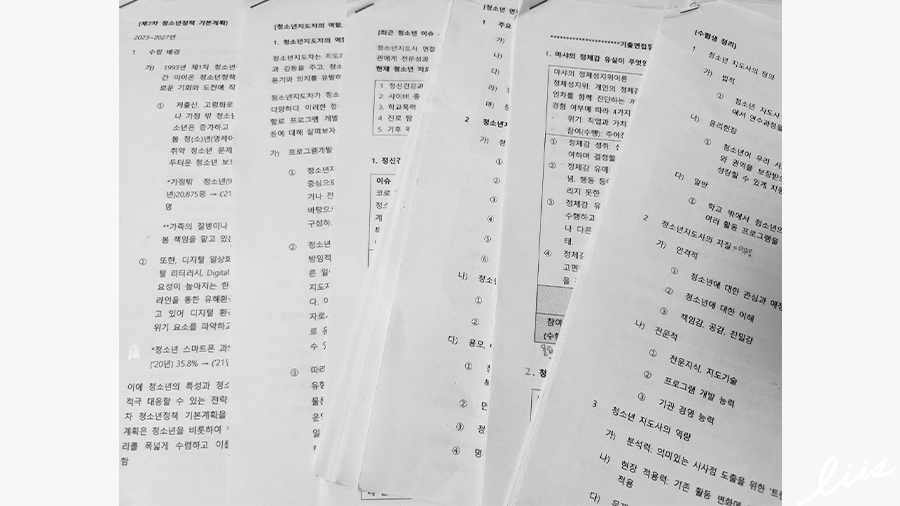 [제7차 청소년정책 기본계획]
2023~2027년
1 수립 배경
가) 1993년 제1차 청소년
간 이어온 청소년정책
로운 기회와 도전에 직
① 저출산, 고령화로
나 가정 밖 청소년
소년은 증가하고
봄 청(소)년(영케어
취약 청소년 문제
두터운 청소년 보
*가정밖 청소년(
년)20,875명 → ('21
명
**가족의 질병이나
봄 책임을 맡고 있는
② 또한, 디지털 일상화
털 리터러시, Digital
요성이 높아지는 한
라인을 통한 유해환
고 있어 디지털 환
위기 요소를 파악하고
*청소년 스마트폰 과
('20년) 35.8% → ('21
이에 청소년의 특성과 청소
적극 대응할 수 있는 전략
차 청소년정책 기본계획을
계획은 청소년을 비롯하여
리를 폭넓게 수렴하고 이를
함
[청소년지도자의 역할,
1. 청소년지도자의 역할
청소년지도자는 지도
과 감동을 주고, 청소
동기와 의지를 유발하
청소년지도자가 청소
다양하다. 이러한 청
할로 프로그램 개발
등에 대해 살펴보자
가) 프로그램개발
① 청소년지
중심으로
거나 전
바탕으
구성하
② 청소년
방임적
른 일
지도지
다. 이
자로
로 운
수 있
③ 따라
유형
물론
운영
일
그
[최근 청소년 이슈
청소년지도사 면접
관에게 전문성과
현재 청소년 지도
1 정신건강과
2. 사이버 중
3. 학교폭력
4 진로 탐
5 기후 위
1. 정신건
이슈
코로
청소
계
[청소년 면
1 주요
가)
나)
다)
라)
마)
2 청소년지
가) 청
①
②
③
④
⑤
⑥
나) 청소년
①
②
다) 용모,
①
②
③
④
**********기출면접질
1. 마샤의 정체감 유실이 무엇인
마샤의 정체성지위이론
정체성지위, 개인의 정체감
인차를 함께 진단하는 개
경험 여부에 따라 4가지
· 위기: 직업과 가치
· 참여(수행): 주어진
① 정체감 성취: 삶
여하며 결정할
② 정체감 유예:
념, 행동 등
리지 못한
③ 정체감 유
수행하고
나 다른
태
④ 정체감
고민
을
참여
(수행
2. 청
(수험생 정리)
1 청소년 지도사의 정의
가) 법적
① 청소년 지도사
에서 연수과정을
나) 윤리헌장
① 청소년이 우리 사
와 권익을 보장받
성장할 수 있게 지원
다) 일반
① 학교 밖에서 청소년의
여러 활동 프로그램을
2 청소년지도사의 자질
가) 인격적
① 청소년에 대한 관심과 애정
② 청소년에 대한 이해
③ 책임감, 공감, 친밀감
나) 전문적
① 전문지식, 지도기술
② 프로그램 개발 능력
③ 기관 경영 능력
3 청소년 지도사의 역량
가) 분석력: 의미있는 시사점 도출을 위한
나) 현장 적용력: 기존 활동 변화에
적용
다)
liis